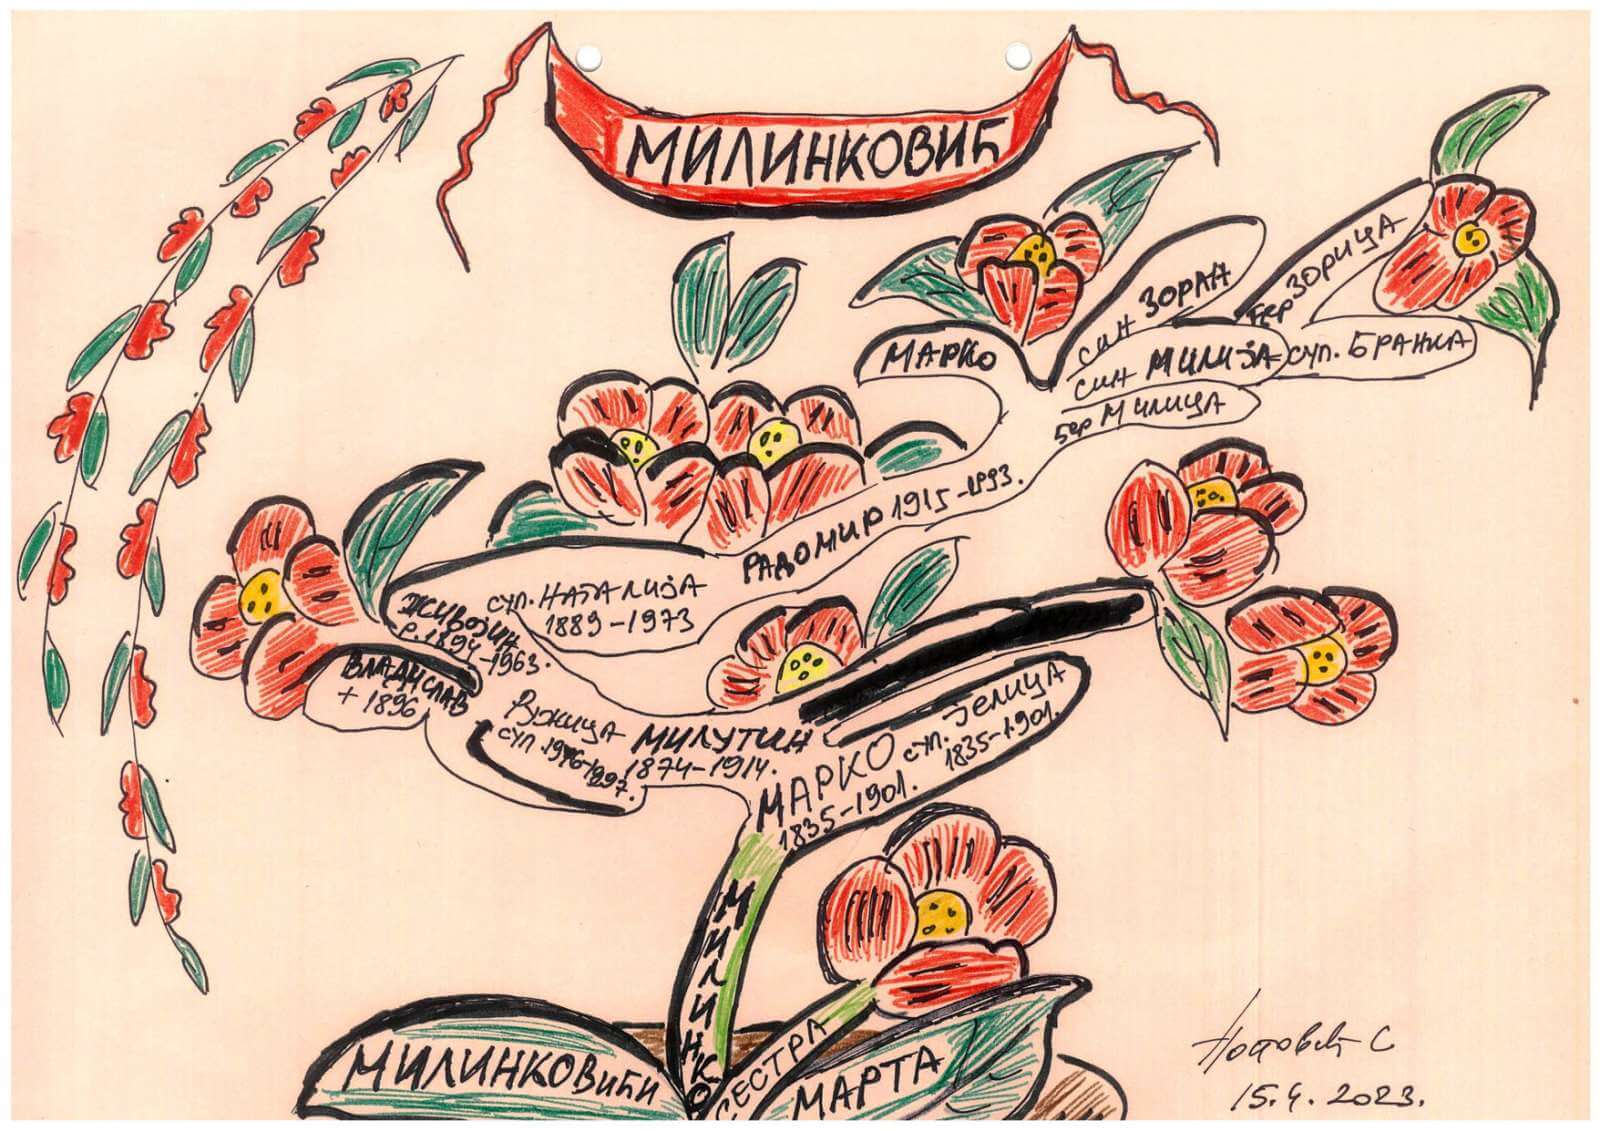 МИЛИНКОВИЋ
ЗОРИЦА
син ЗОРАН
МАРКО
син МИЛИЈА = суп. БРАНКА
бер МИЛИЦА
РАДОМИР 1915-1993.
суп. НАТАЛИЈА
1889-1973
ЖИВОЈИН
р. 1894-1963.
ВЛАДИСЛАВ
+ 1896
МИЛУТИН
1874-1914.
суп. ЈЕЛИЦА
1835-1901.
МАРКО
1835-1901.
МИЛИНКО
СЕСТРА
МАРТА
МИЛИНКОВИЋИ
15.4.2023.